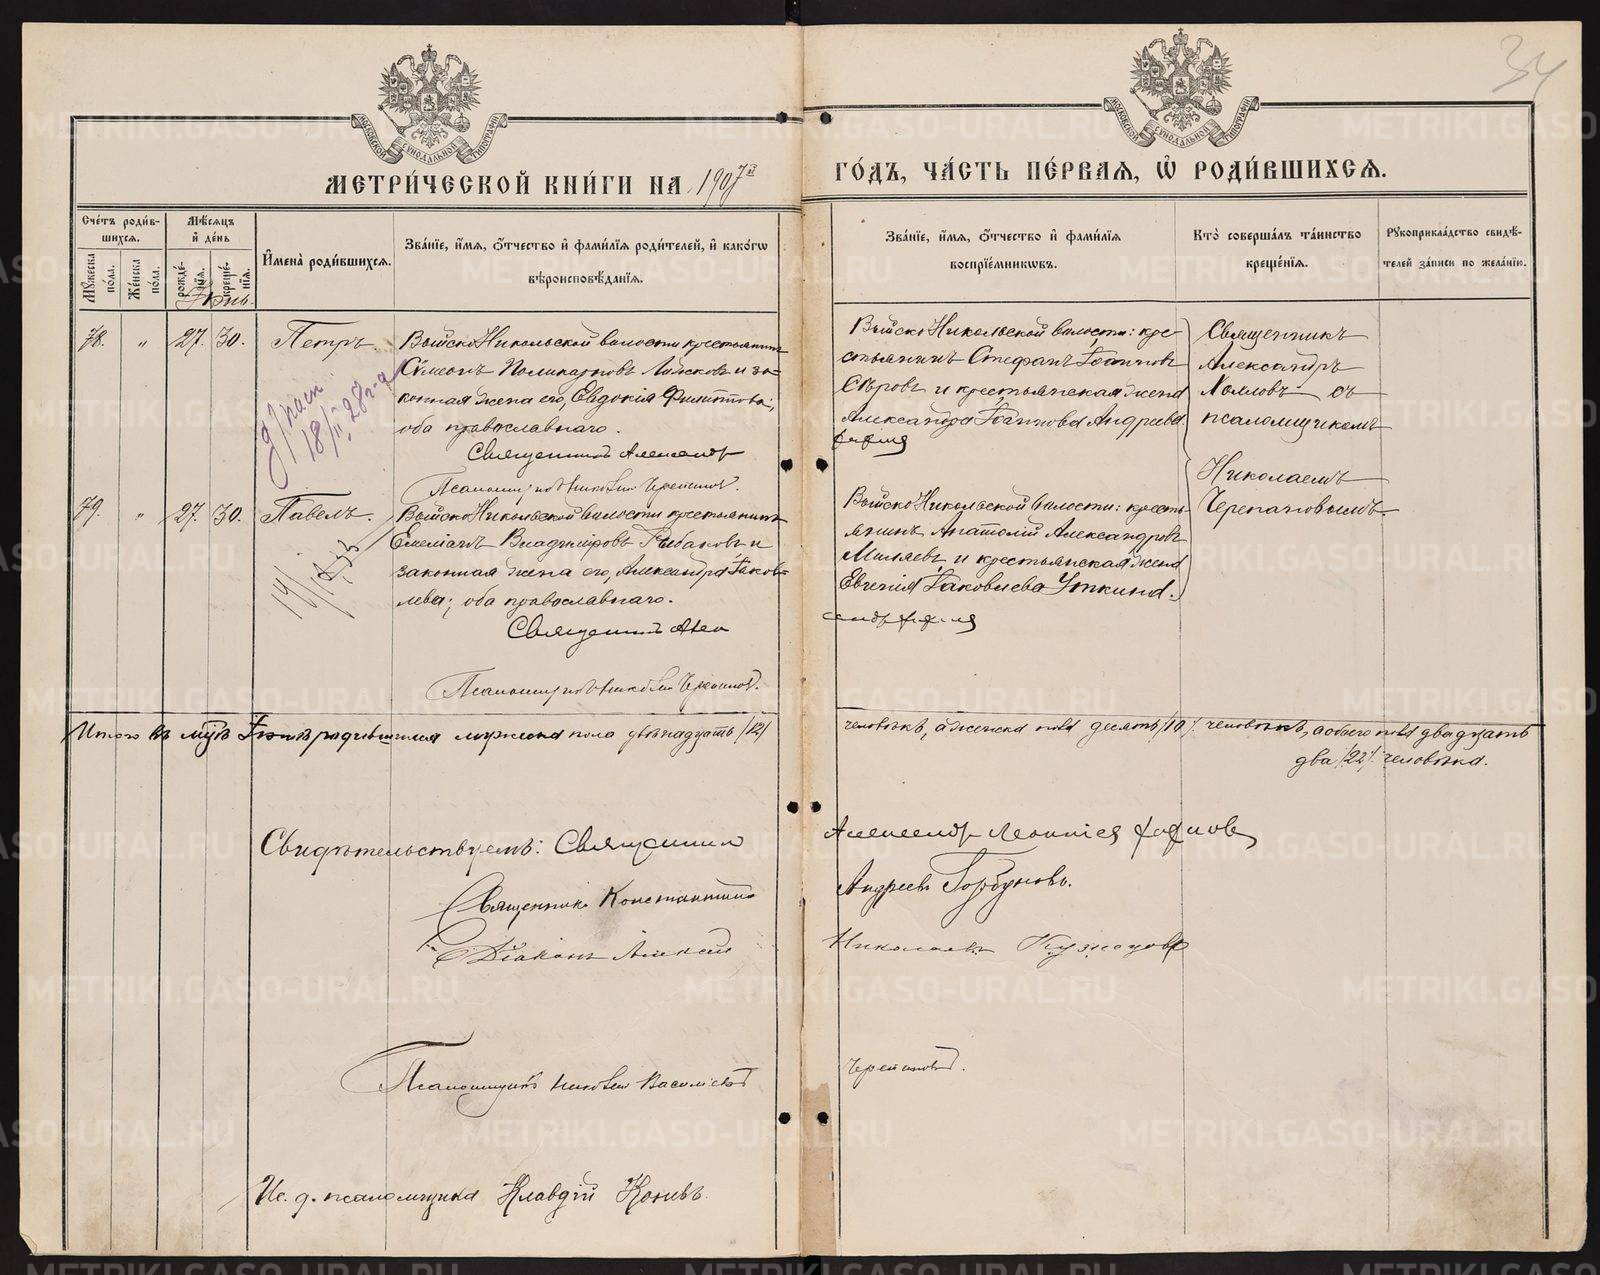 34
МОСКОВСКОЙ СѴНОДАЛЬНОЙ ТИПОГРАФІИ
МОСКОВСКОЙ СѴНОДАЛЬНОЙ ТИПОГРАФІИ
МЕТРИ́ЧЕСКОЙ КНИ́ГИ НА 1907й ГО́ДЪ, ЧА́СТЬ ПЕ́РВАЯ, Ѡ҆ РОДИ́ВШИХСЯ.
Сче́тъ роди́в-
шихся.
Мѣ́сяцъ
и҆ де́нь
Мꙋ́жеска по́ла.
Же́нска по́ла.
рожде́-
нїя.
креще́-
нїя.
Іюнь.
И҆мена̀ роди́вшихся.
Зва́нїе, и҆́мя, ѻ҆́тчество и҆ фами́лїя роди́телей, и҆ како́гѡ
вѣроисповѣ́данїя.
Зва́нїе, и҆́мя, ѻ҆́тчество и҆ фами́лїя
воспрїе́мниковъ.
Кто̀ соверша́лъ та́инство
креще́нїя.
Рꙋкоприкла́дство свидѣ́-
телей за́писи по жела́нїю.
78. " 27. 30. Петръ.
Выйско Никольской волости крестьянинъ
Сѵмеонъ Поликарповъ и за-
конная жена его, Евдокія Филиппова;
оба православнаго.
Священникъ Александр
Псаломщикъ Николай Черепановъ.
18/II 28 г.
Выйско Никольской волости: кре-
стьянинъ Стефанъ Іоанновъ
Сѣровъ и крестьянская жена
Александра Іоаннова Андреева.
Священникъ
Александръ
съ
псаломщикомъ
Николаемъ
Черепановымъ.
79. " 27. 30. Павелъ.
Выйско Никольской волости крестьянинъ
Емеліанъ Владиміровъ Рыбаковъ и
законная жена его, Александра Іаков-
лева; оба православнаго.
Священникъ Алек
Псаломщикъ Николай Черепановъ.
Выйско Никольской волости: кресть-
янинъ Анатолій Александровъ
Миляевъ и крестьянская жена
Евгенія Іаковлева Уткина.
Итого въ м-цѣ Іюнѣ родившихся мужеска пола двѣнадцать /12/ человѣкъ, а женска пола десять /10/ человѣкъ, а обоего пола двадцать
два /22/ человѣка.
Свидѣтельствуемъ: Священникъ Александр
Священникъ Константинъ Андреевъ Горбуновъ.
Діаконъ Алексій Николаевъ Кузнецовъ
Псаломщикъ Николай Васильевъ Черепановъ.
Ис. д. псаломщика Клавдій
METRIKI.GASO-URAL.RU